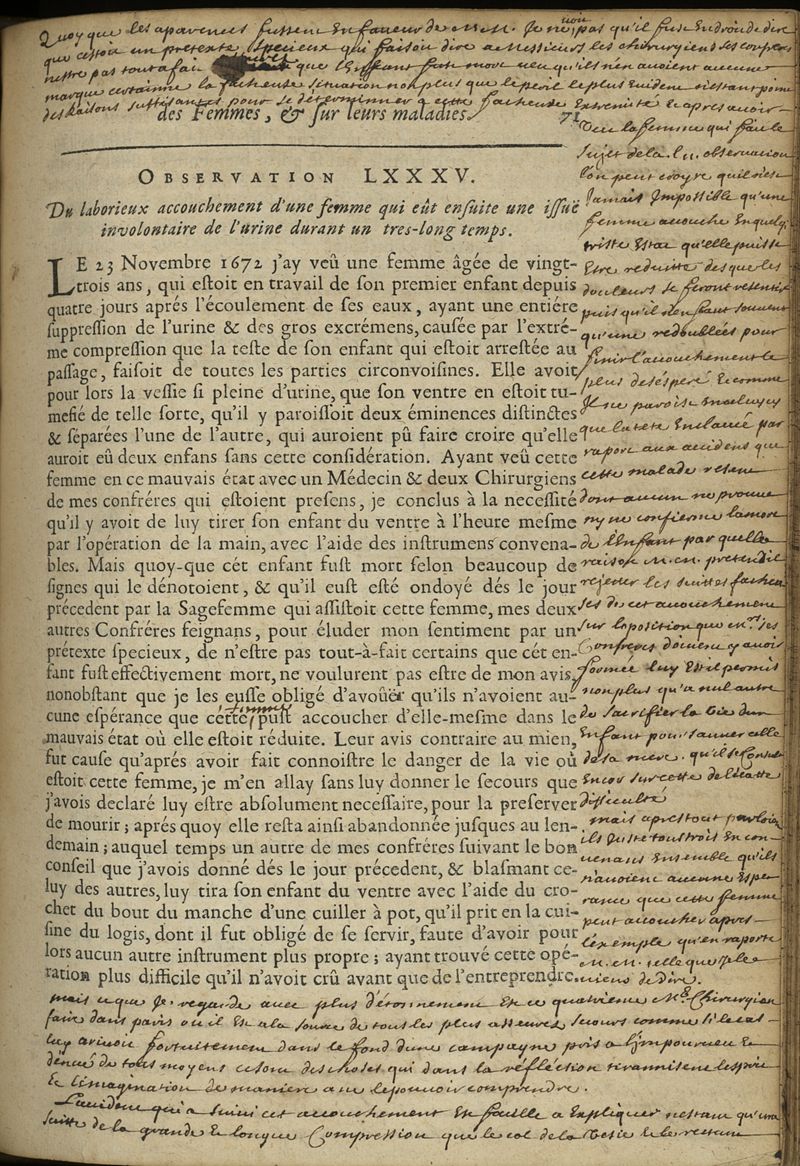 Quoy que les aparences fussent En faveur de Mr M. Je ne pas qu'il fuse En droit de dire
que cestoit un pretexte specieux qui faisoit dire a Messieurs les chirurgiens ses confreres
nestre pas tout a fait que L'Enfant fut mort veu qu'ils n'en avoient aucune
marque certainne la facheuse situation non plus que le peril le plus Evident n'estant point
des Raisons suffisantes pour se determinner a cette facheuse Extremité Et apres avoir
des Femmes, & sur leurs maladies. 71
OBSERVATION LXXXV.
Du laborieux accouchement d'une femme qui eût ensuite une issuë
involontaire de l'urine durant un tres-long temps.
LE 23 Novembre 1672 j'ay veû une femme âgée de vingt-
trois ans, qui estoit en travail de son premier enfant depuis
quatre jours aprés l'écoulement de ses eaux, ayant une entiére
suppression de l'urine & des gros excrémens, causée par l'extré-
me compression que la teste de son enfant qui estoit arrestée au
passage, faisoit de toutes les parties circonvoisines. Elle avoit
pour lors la vessie si pleine d'urine, que son ventre en estoit tu-
mefié de telle sorte, qu'il y paroissoit deux éminences distinctes
& séparées l'une de l'autre, qui auroient pû faire croire qu'elle
auroit eû deux enfans sans cette considération. Ayant veû cette
femme en ce mauvais état avec un Médecin & deux Chirurgiens
de mes confréres qui estoient presens, je conclus à la necessité
qu'il y avoit de luy tirer son enfant du ventre à l'heure mesme
par l'opération de la main, avec l'aide des instrumens convena-
bles. Mais quoy-que cét enfant fust mort selon beaucoup de
signes qui le dénotoient, & qu'il eust esté ondoyé dés le jour
précedent par la Sagefemme qui assistoit cette femme, mes deux
autres Confréres feignans, pour éluder mon sentiment par un
prétexte specieux, de n'estre pas tout-à-fait certains que cét en-
fant fust effectivement mort, ne voulurent pas estre de mon avis,
nonobstant que je les eusse obligé d'avoüer qu'ils n'avoient au-
cune espérance que cette femme pust accoucher d'elle-mesme dans le
mauvais état où elle estoit réduite. Leur avis contraire au mien,
fut cause qu'aprés avoir fait connoistre le danger de la vie où
estoit cette femme, je m'en allay sans luy donner le secours que
j'avois declaré luy estre absolument necessaire, pour la preserver
de mourir ; aprés quoy elle resta ainsi abandonnée jusques au len-
demain ; auquel temps un autre de mes confréres suivant le bon
conseil que j'avois donné dés le jour précedent, & blasmant ce-
luy des autres, luy tira son enfant du ventre avec l'aide du cro-
chet du bout du manche d'une cuiller à pot, qu'il prit en la cui-
sine du logis, dont il fut obligé de se servir, faute d'avoir pour
lors aucun autre instrument plus propre ; ayant trouvé cette opé-
ration plus difficile qu'il n'avoit crû avant que de l'entreprendre.
veu la femme qui fait le
sujet de la observation
l'on peut croyre qu'il n'est
Jamais Impossible qu'une
femme accouche En quelq
triste Estat qu'elle puisse
Estre reduitte des que les
douleurs se feront resentir
puis qu'il n'en faut souvent
qu'une redoublées pour
finir l'accouchement le
plus desésperé Et comme
Je ne parois
que la tete Enclavée par
raport aux accidens que
cette malade resent
dont aucun ne prouve
ny ne confirme la mort
de L'Enfant par quelle
raison M. M. pretend il
rejetter les suittes facheu
ses de cet accouchement
sur l'oposition que Mrs ses
Confreres doivent y avoir
formée luy Est il permis
non plus qu'a nul autre
de sacrifier la Vie d'un
Enfant pour sauver celle
de sa mere. qu'il se consulte
Encor sur cette delicatte
difficulté
mais apres tout parloit
ils Juste tous trois En con
venans Ensemble qu'ils
n'avoient aucune Espe
rance que cette femme
peut accoucher apres
L'exemple qu'en raporte
M. M. telle que Je le
viens de dire.
mais ce que Je regarde avec plus d'etonnement Est ce quatrieme Mtre Chirurgien
faire dans paris ou il Est a la source de tous les plus asseurez secours comme s'il
luy arrivoit fortuitement dans le fond d'une campagne pris a L'impourveu Et
denué de tous moyens ce sont des choses qui dans la réfléction tirannisent l'esprit
Et L'imagination de maniere a ne les pouvoir comprendre.
L'accident qui a suivi cet accouchement Est facille a Expliquer n'estant qu'une
suitte de la grande Et longue Compression que le col de la Vesie Et le rectum